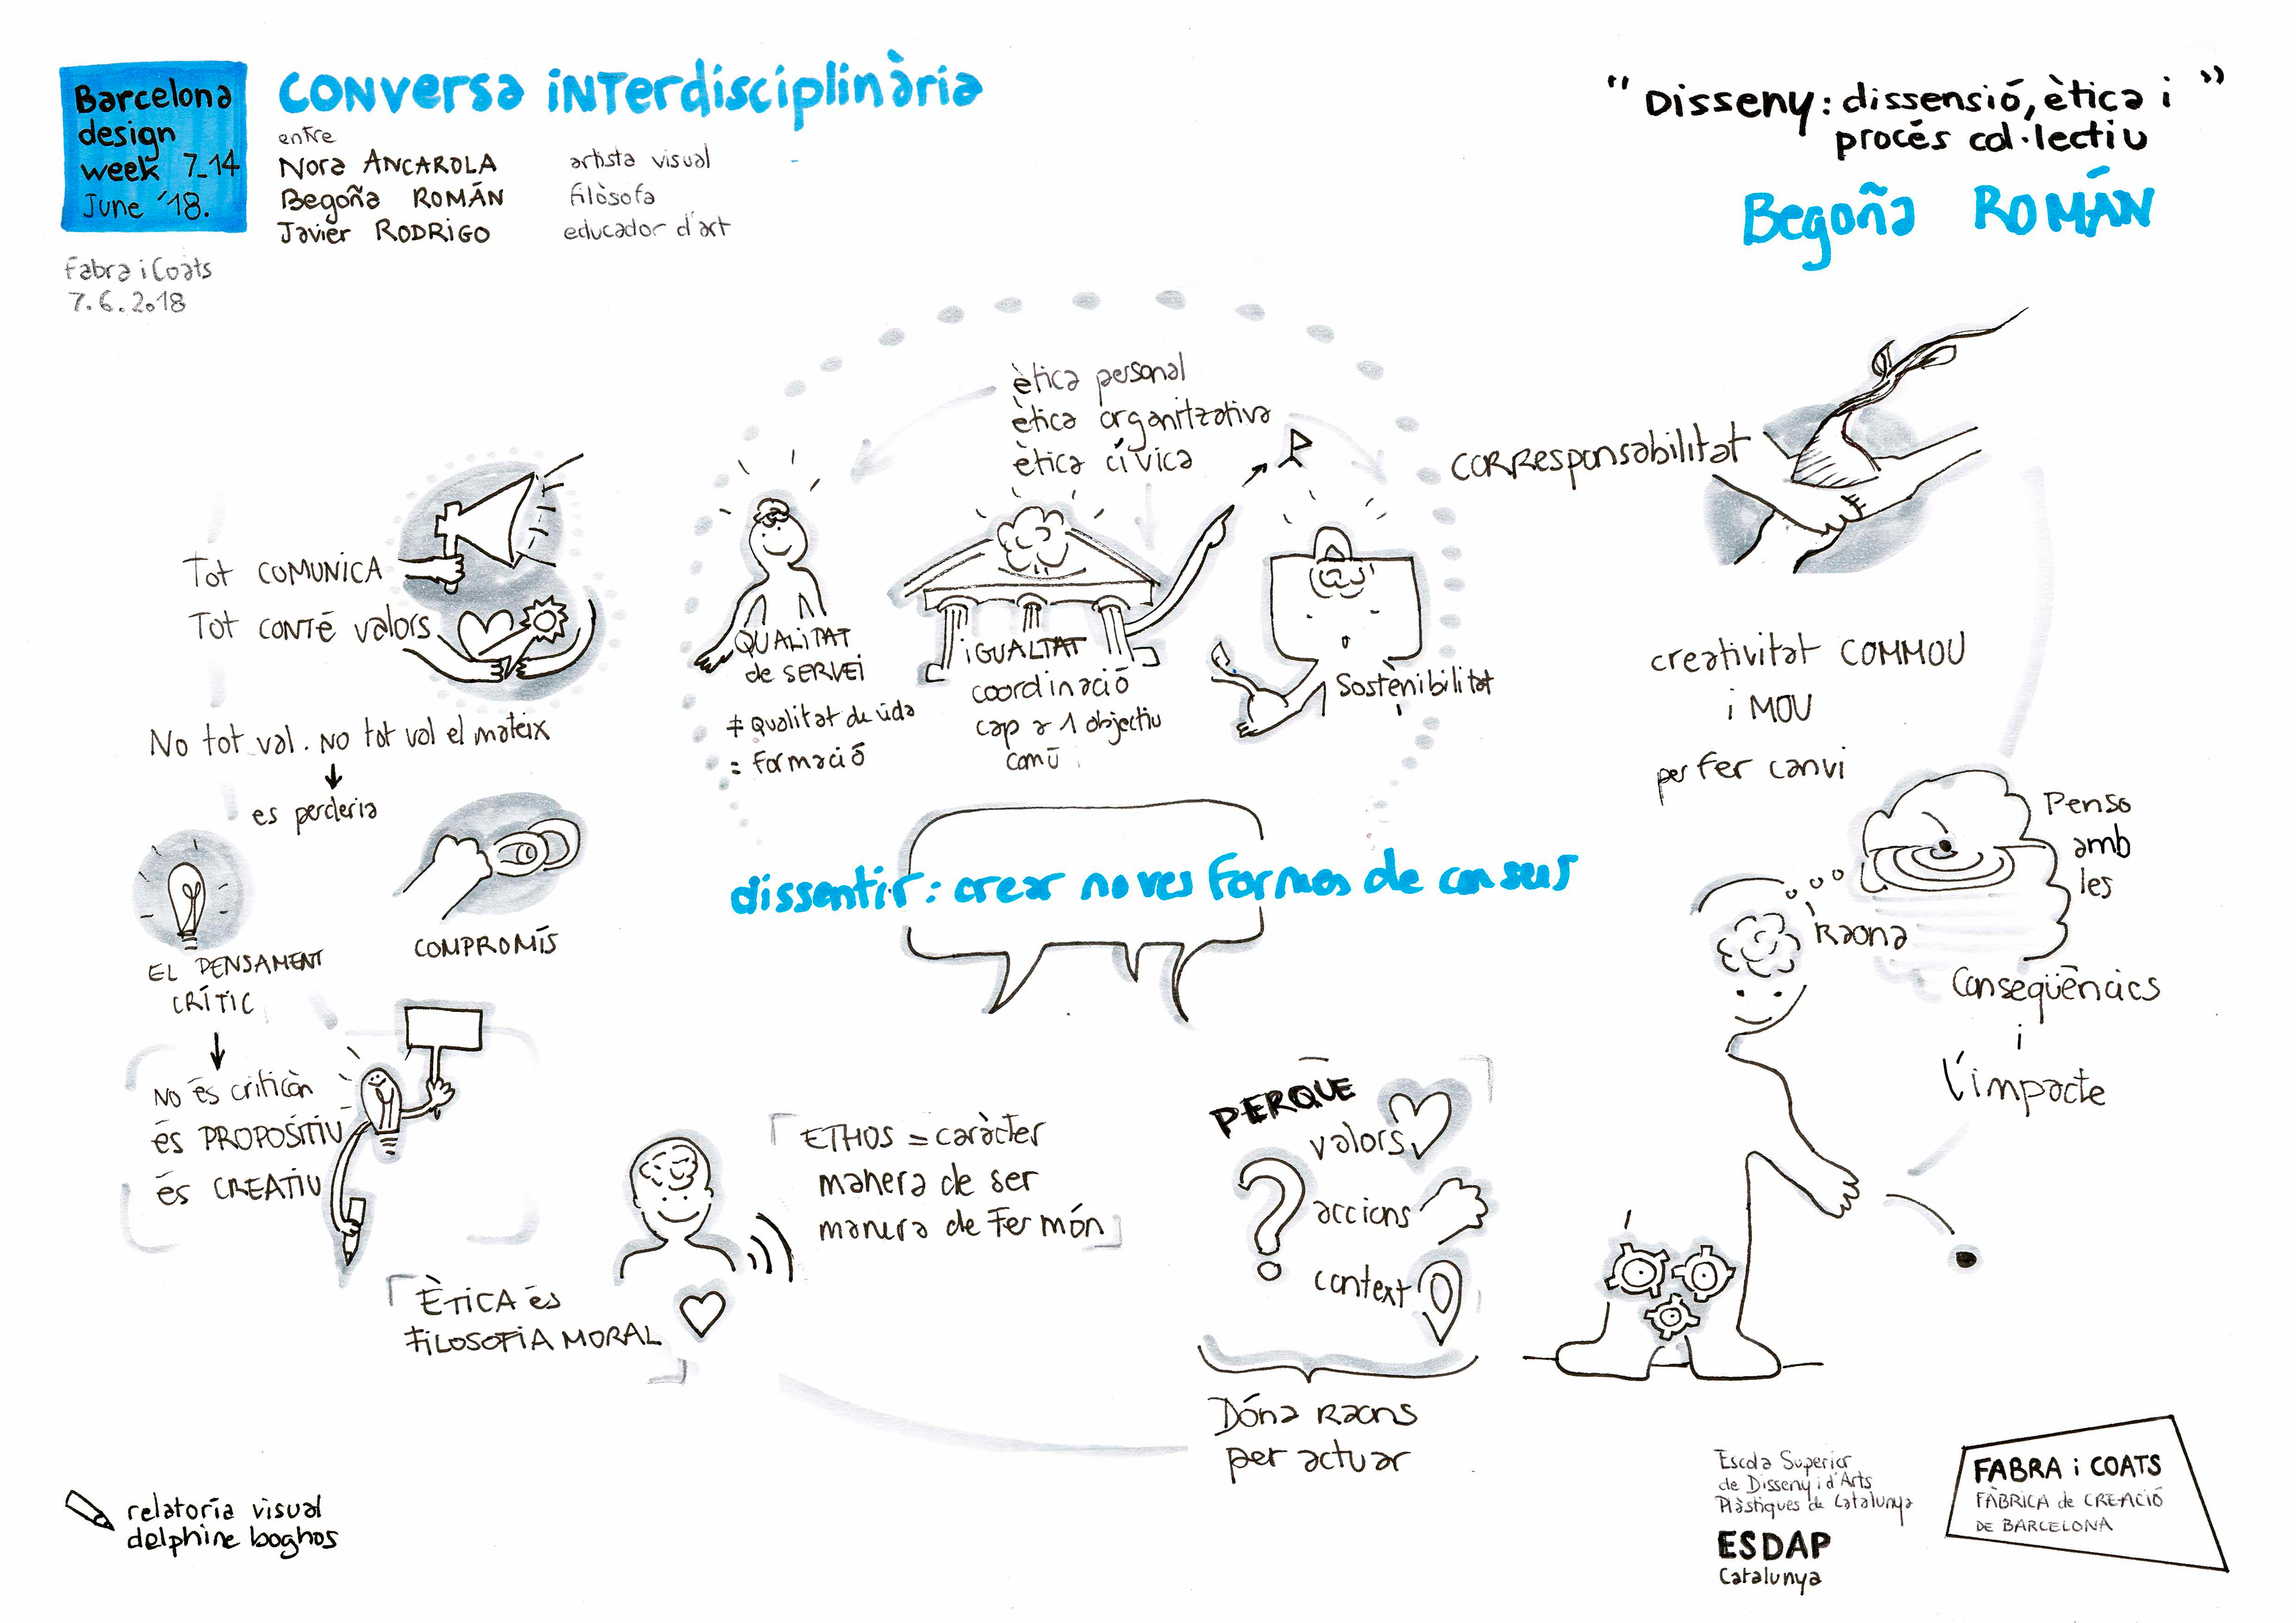 Barcelona
design
week 7_14
June '18.
Fabra i Coats
7.6.2018
CONVERSA iNTerdisciplinària
entre
Nora ANCAROLA artista visual
Begoña ROMÁN filòsofa
Javier RODRIGO educador d'art
"Disseny: dissensió, ètica i"
procés col·lectiu
Begoña ROMÁN
Tot COMUNICA
Tot CONTÉ valors
No tot val. No tot val el mateix
es perderia
EL PENSAMENT
CRÍTIC
COMPROMÍS
No és criticón
és PROPOSITIU
és CREATIU
ÈTICA és
FILOSOFIA MORAL
ETHOS = caràcter
manera de ser
manera de fer món
ètica personal
ètica organitzativa
ètica cívica
QUALITAT
de SERVEI
≠ Qualitat de vida
= formació
iGUALTAT
coordinació
cap a 1 objectiu
comú
Sostenibilitat
dissentir: crear noves formes de consens
PERQUE
valors
?
accions
context
Dóna raons
per actuar
CORResponsabilitat
creativitat COMMOU
i MOU
per fer canvi
Penso
amb
les
Raona
Conseqüències
i
l'impacte
relatoría visual
delphine boghos
Escola Superior
de Disseny i d'Arts
Plàstiques de Catalunya
ESDAP
Catalunya
FABRA i COATS
FÀBRICA de CREACIÓ
DE BARCELONA